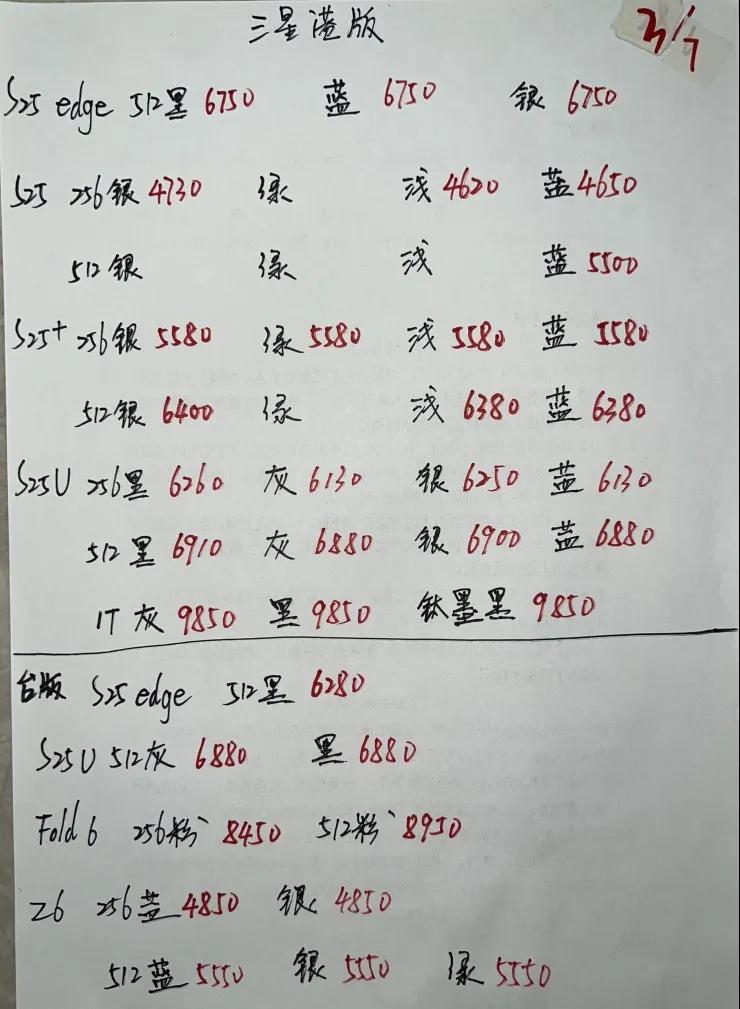 三星港版 3/7
S25 edge 512黑 6750 蓝 6750 银 6750
S25 256银 4730 绿 浅 4620 蓝 4650
512银 绿 浅 蓝 5500
S25+ 256银 5580 绿 5580 浅 5580 蓝 5580
512银 6400 绿 浅 6380 蓝 6380
S25U 256黑 6260 灰 6130 银 6250 蓝 6130
512黑 6910 灰 6880 银 6900 蓝 6880
1T 灰 9850 黑 9850 钛墨黑 9850
台版 S25 edge 512黑 6280
S25U 512灰 6880 黑 6880
Fold 6 256粉 8450 512粉 8950
Z6 256蓝 4850 银 4850
512蓝 5550 银 5550 绿 5550